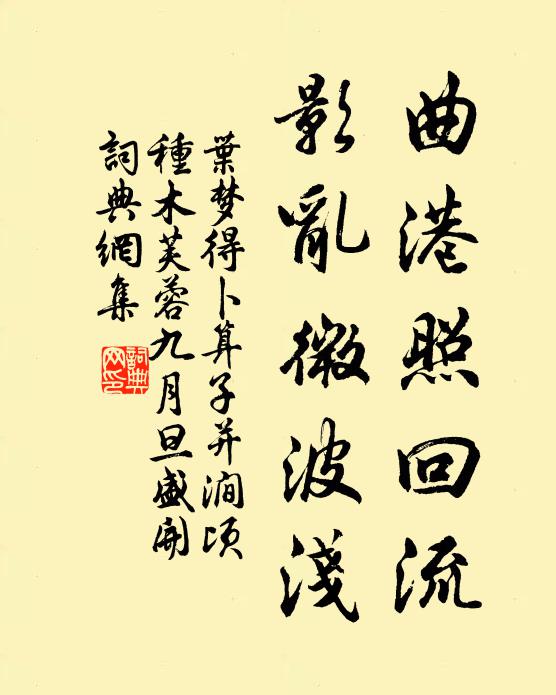 曲港照回流
影亂微波淺
葉梦得卜算子并澗頃
種木芙蓉九月旦盛開
詞典網集
詞典
网印